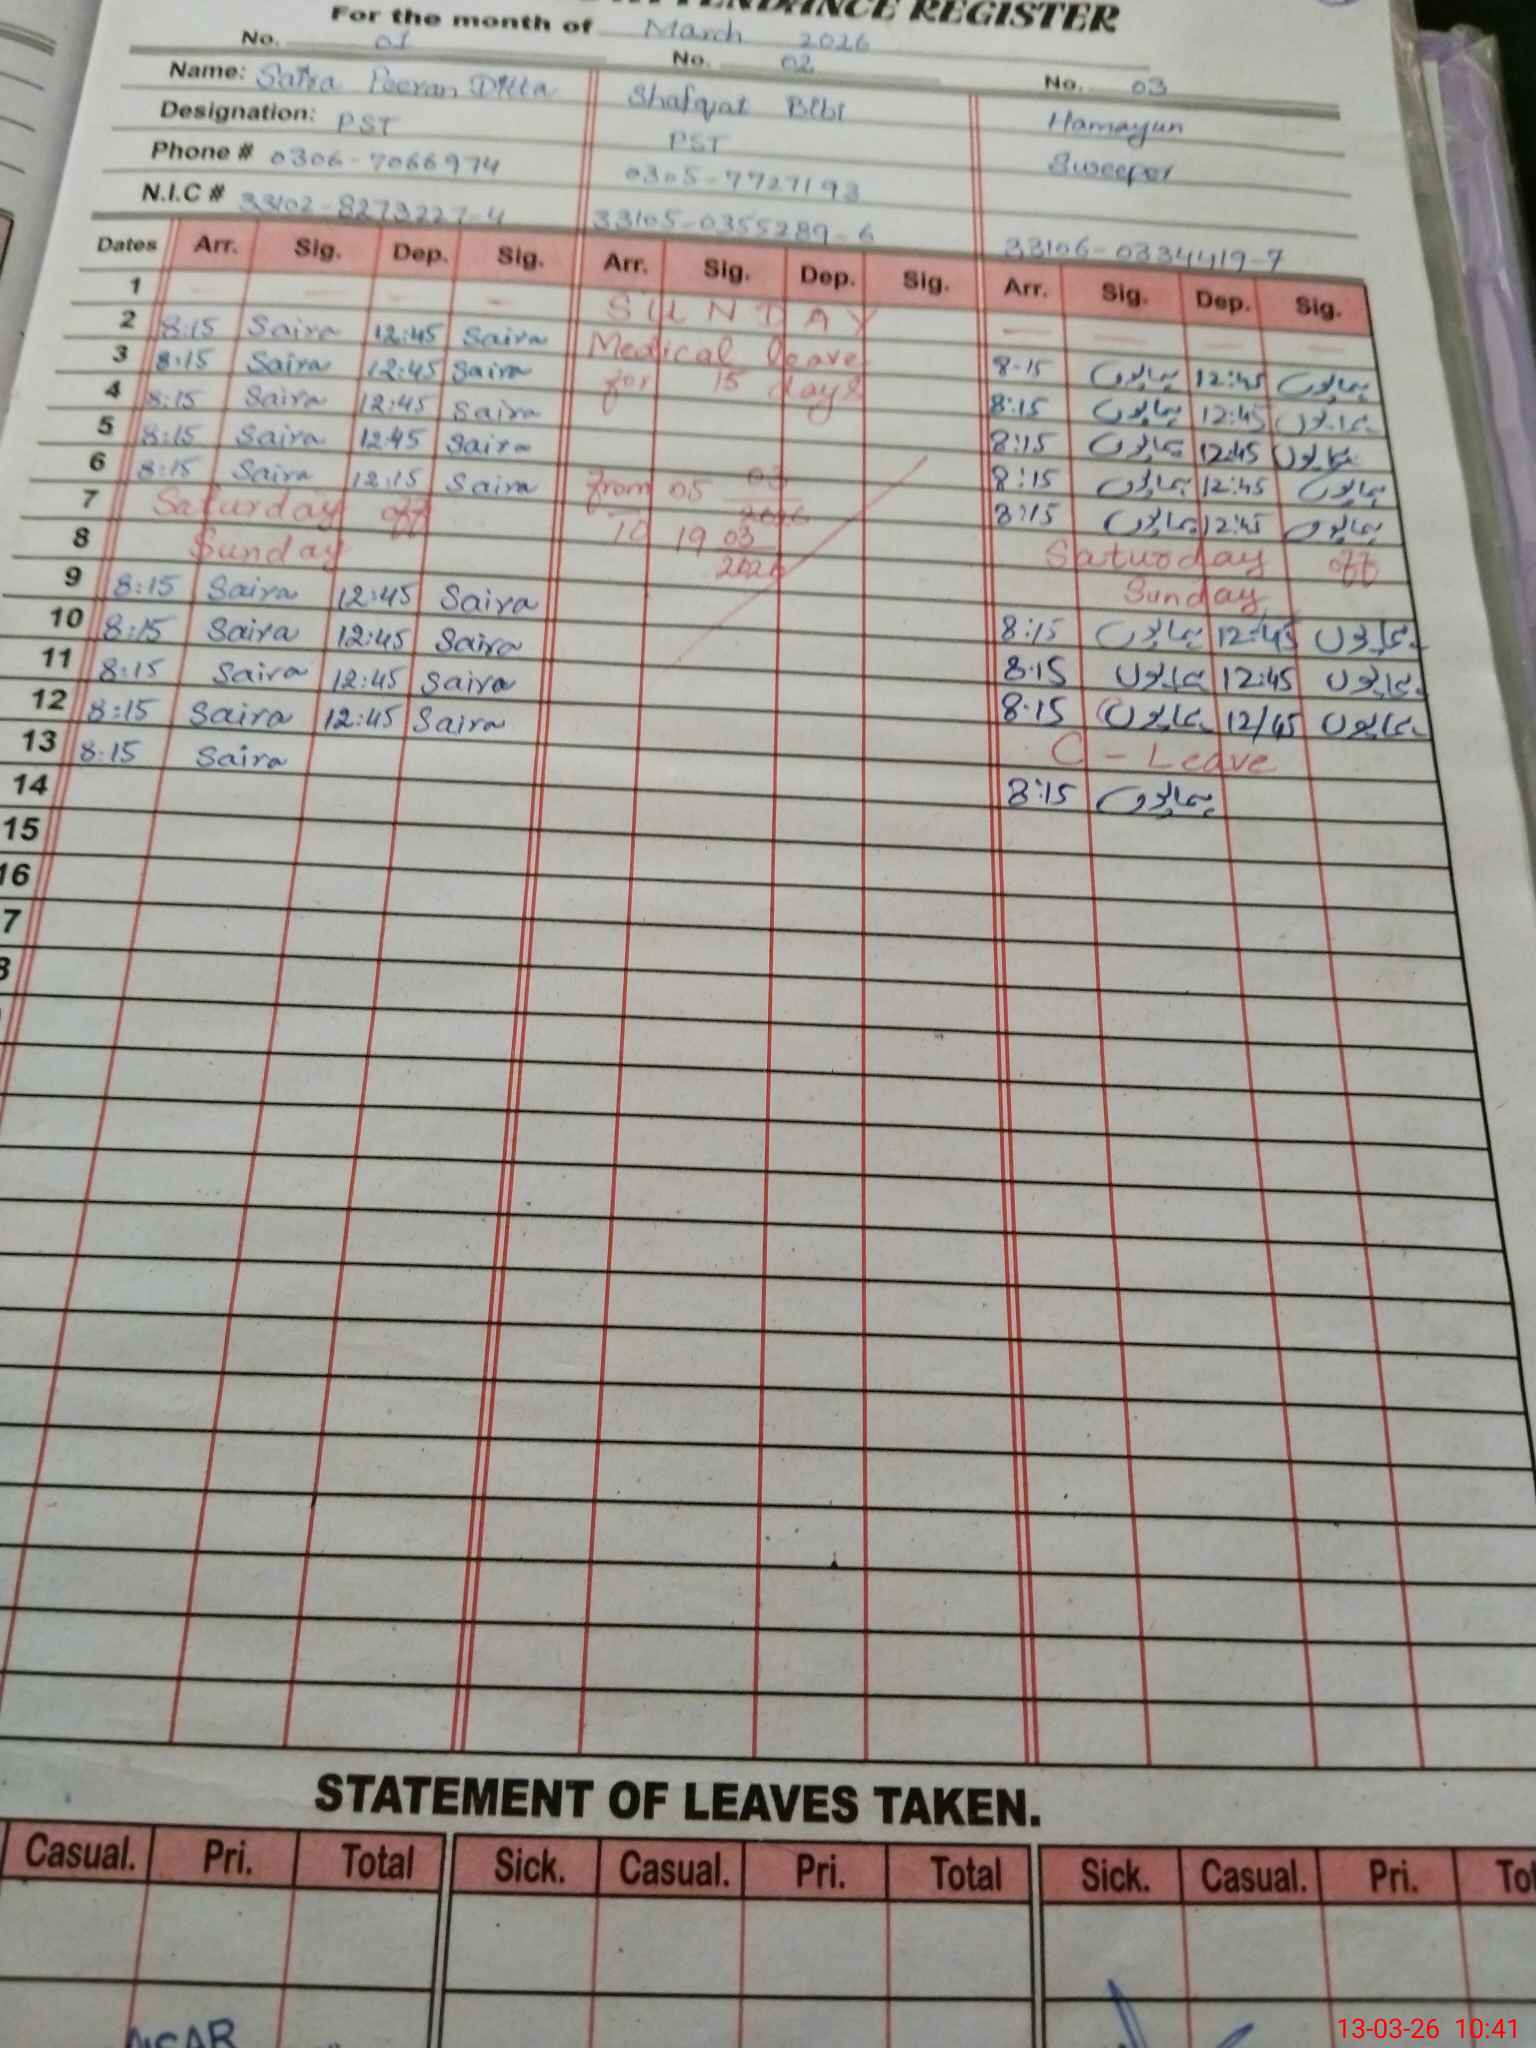 ATTENDANCE REGISTER
For the month of March 2026
No. 01 No. 02 No. 03
Name: Saira Peeran Ditta Shafqat Bibi Hamayun
Designation: PST PST Sweeper
Phone # 0306-7066974 0305-7727193
N.I.C # 33102-8273227-4 33105-0355289-6 33106-0334419-7
Dates Arr. Sig. Dep. Sig. Arr. Sig. Dep. Sig. Arr. Sig. Dep. Sig.
1 - - - - SUNDAY - - - -
2 8:15 Saira 12:45 Saira Medical leave 8-15 ہمایوں 12:45 ہمایوں
3 8:15 Saira 12:45 Saira for 15 days 8:15 ہمایوں 12:45 ہمایوں
4 8:15 Saira 12:45 Saira 8:15 ہمایوں 12:45 ہمایوں
5 8:15 Saira 12:45 Saira 8:15 ہمایوں 12:45 ہمایوں
6 8:15 Saira 12:15 Saira from 05 03 2026 8:15 ہمایوں 12:45 ہمایوں
7 Saturday off To 19 03 2026 Saturday off
8 Sunday Sunday
9 8:15 Saira 12:45 Saira 8:15 ہمایوں 12:45 ہمایوں
10 8:15 Saira 12:45 Saira 8:15 ہمایوں 12:45 ہمایوں
11 8:15 Saira 12:45 Saira 8:15 ہمایوں 12/45 ہمایوں
12 8:15 Saira 12:45 Saira C - Leave
13 8:15 Saira 8:15 ہمایوں
14
15
16
7
8
STATEMENT OF LEAVES TAKEN.
Casual. Pri. Total Sick. Casual. Pri. Total Sick. Casual. Pri.
13-03-26 10:41